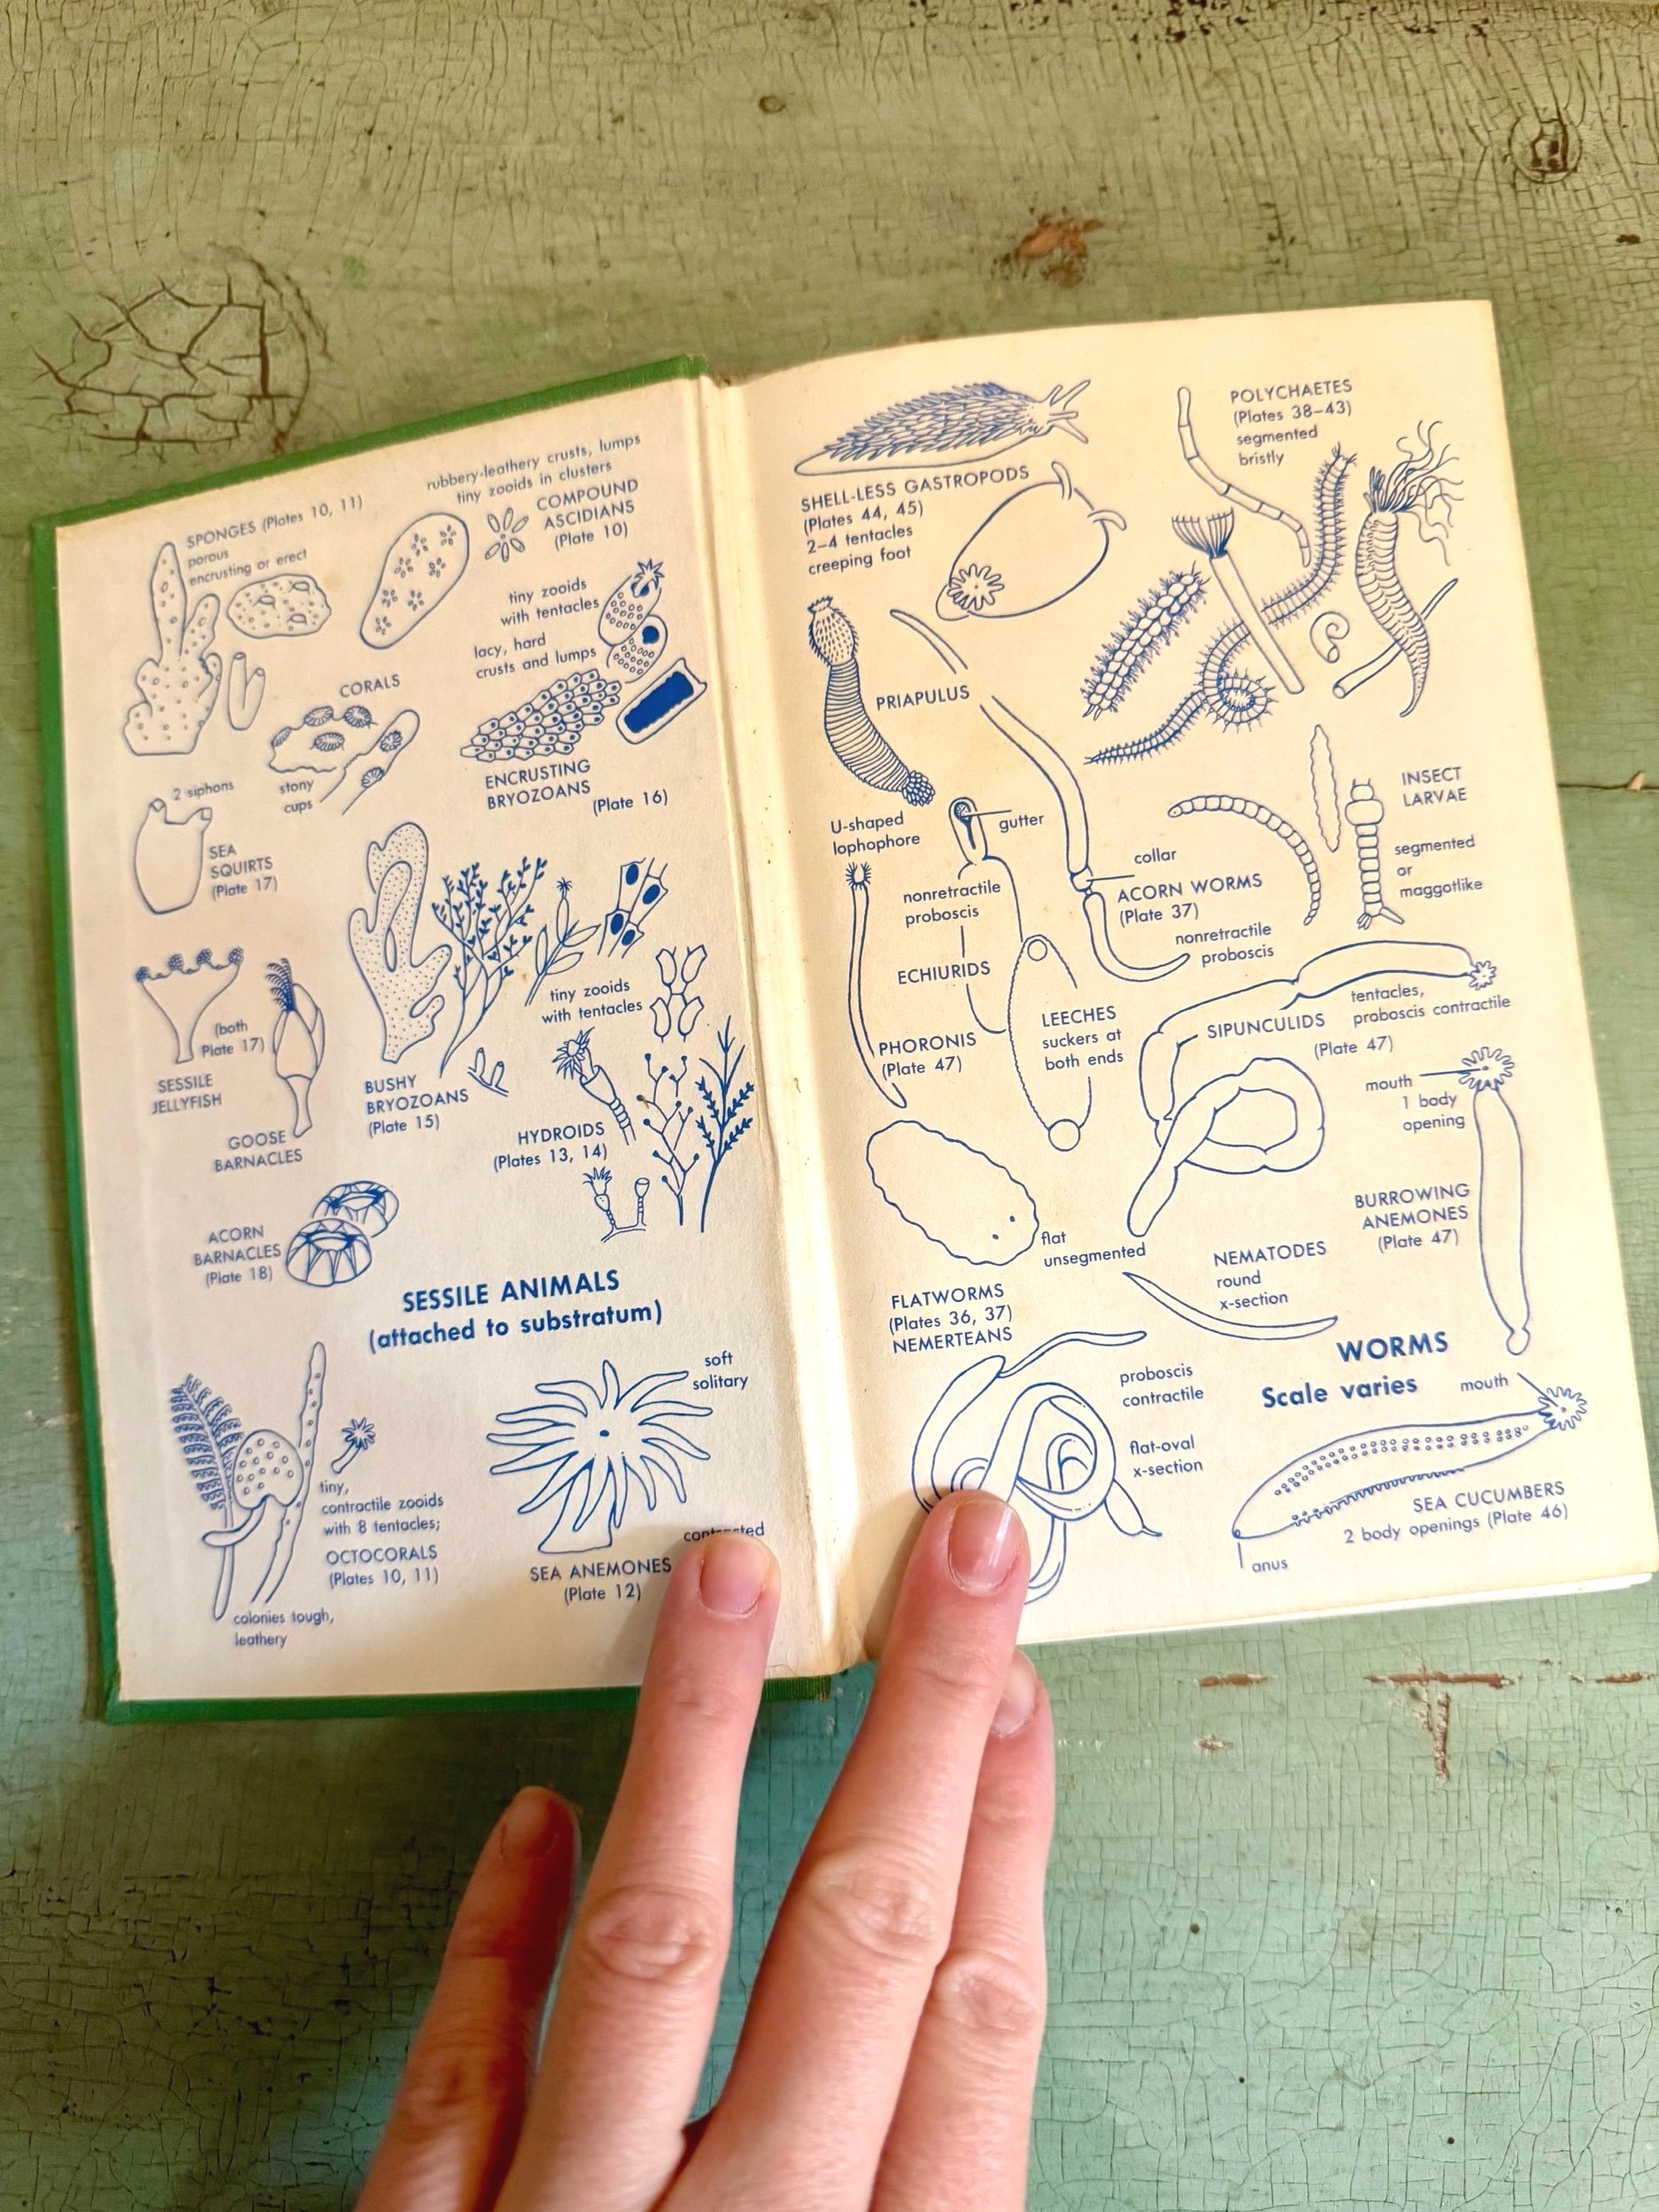 rubbery-leathery crusts, lumps
tiny zooids in clusters
SPONGES (Plates 10, 11)
porous
encrusting or erect
COMPOUND
ASCIDIANS
(Plate 10)
tiny zooids
with tentacles
lacy, hard
crusts and lumps
CORALS
stony
cups
ENCRUSTING
BRYOZOANS
(Plate 16)
2 siphons
SEA
SQUIRTS
(Plate 17)
(both
Plate 17)
SESSILE
JELLYFISH
GOOSE
BARNACLES
BUSHY
BRYOZOANS
(Plate 15)
tiny zooids
with tentacles
HYDROIDS
(Plates 13, 14)
ACORN
BARNACLES
(Plate 18)
SESSILE ANIMALS
(attached to substratum)
tiny,
contractile zooids
with 8 tentacles;
OCTOCORALS
(Plates 10, 11)
colonies tough,
leathery
soft
solitary
contracted
SEA ANEMONES
(Plate 12)
SHELL-LESS GASTROPODS
(Plates 44, 45)
2–4 tentacles
creeping foot
POLYCHAETES
(Plates 38–43)
segmented
bristly
PRIAPULUS
INSECT
LARVAE
segmented
or
maggotlike
U-shaped
lophophore
gutter
nonretractile
proboscis
ECHIURIDS
collar
ACORN WORMS
(Plate 37)
nonretractile
proboscis
PHORONIS
(Plate 47)
LEECHES
suckers at
both ends
SIPUNCULIDS
tentacles,
proboscis contractile
(Plate 47)
mouth
1 body
opening
BURROWING
ANEMONES
(Plate 47)
flat
unsegmented
FLATWORMS
(Plates 36, 37)
NEMERTEANS
NEMATODES
round
x-section
proboscis
contractile
flat-oval
x-section
WORMS
Scale varies
mouth
SEA CUCUMBERS
2 body openings (Plate 46)
anus